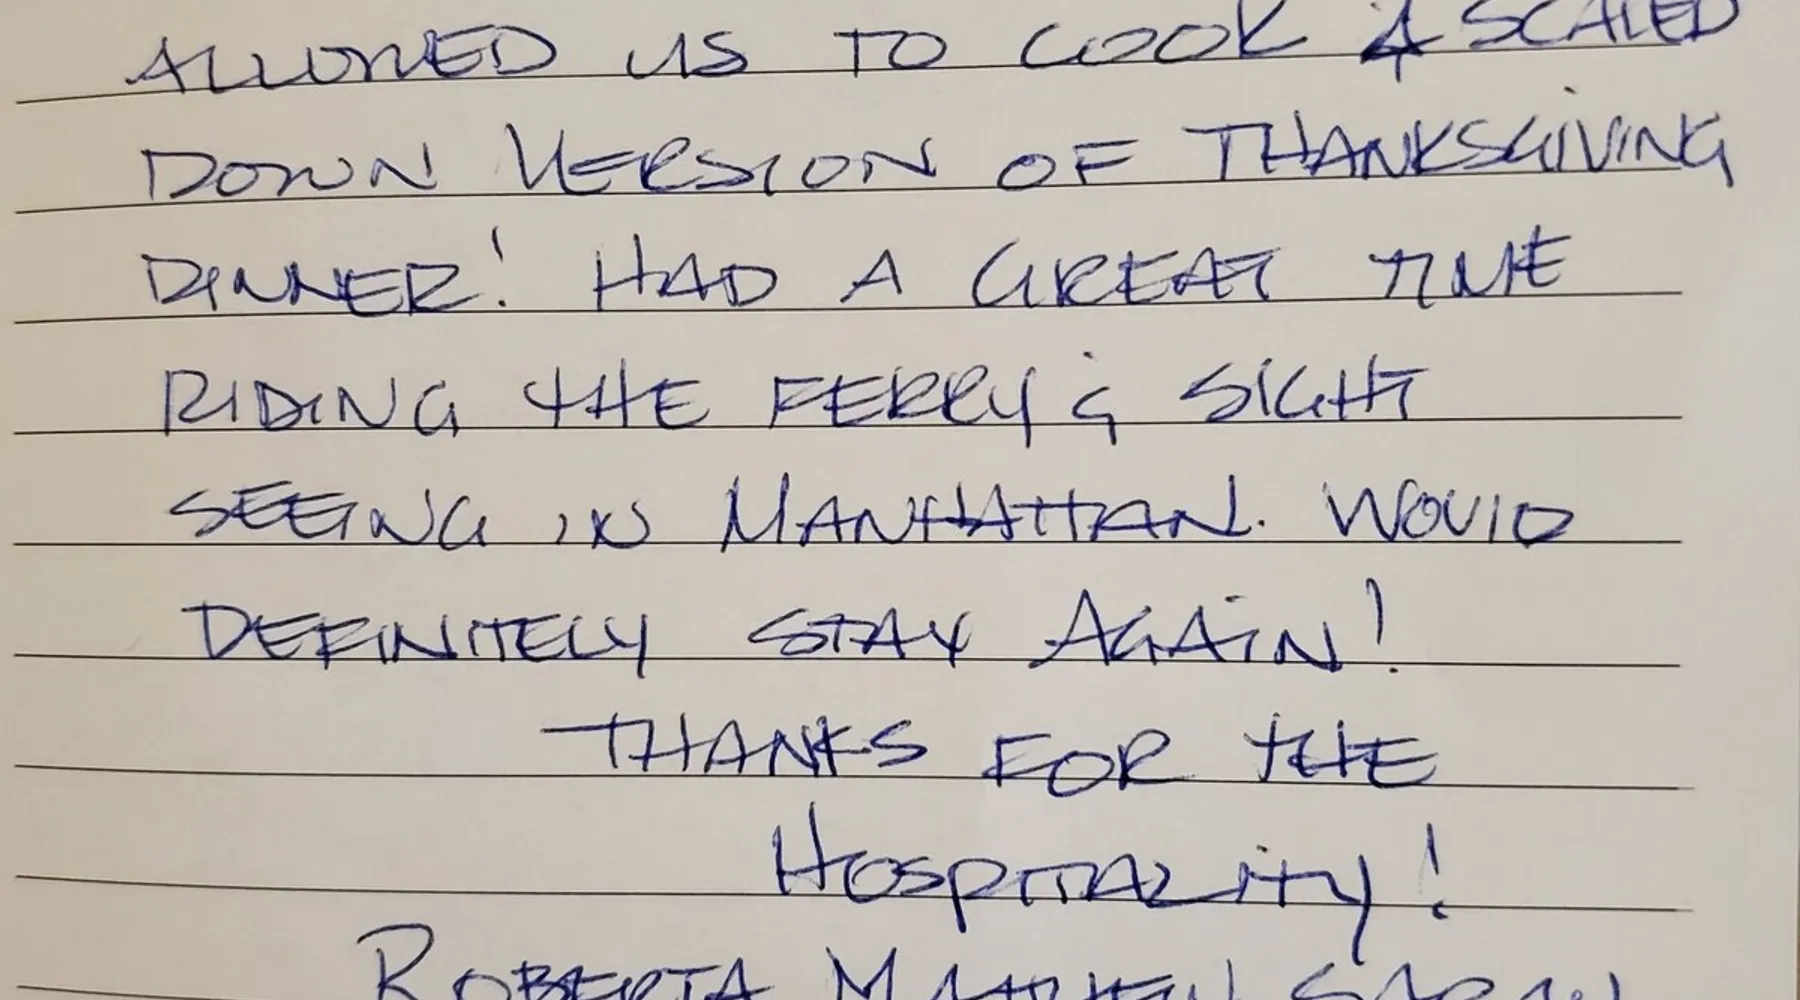 ALLOWED US TO COOK A SCALED
DOWN VERSION OF THANKSGIVING
DINNER! HAD A GREAT TIME
RIDING THE FERRY & SIGHT
SEEING IN MANHATTAN. WOULD
DEFINITELY STAY AGAIN!
THANKS FOR THE
HOSPITALITY!
ROBERTA MATTHEW SARAH